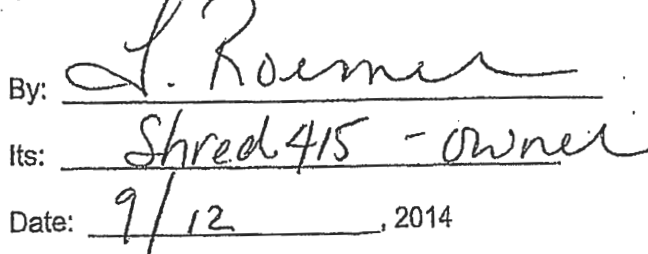 By: T. Roemer
Its: Shred415 - owner
Date: 9/12, 2014